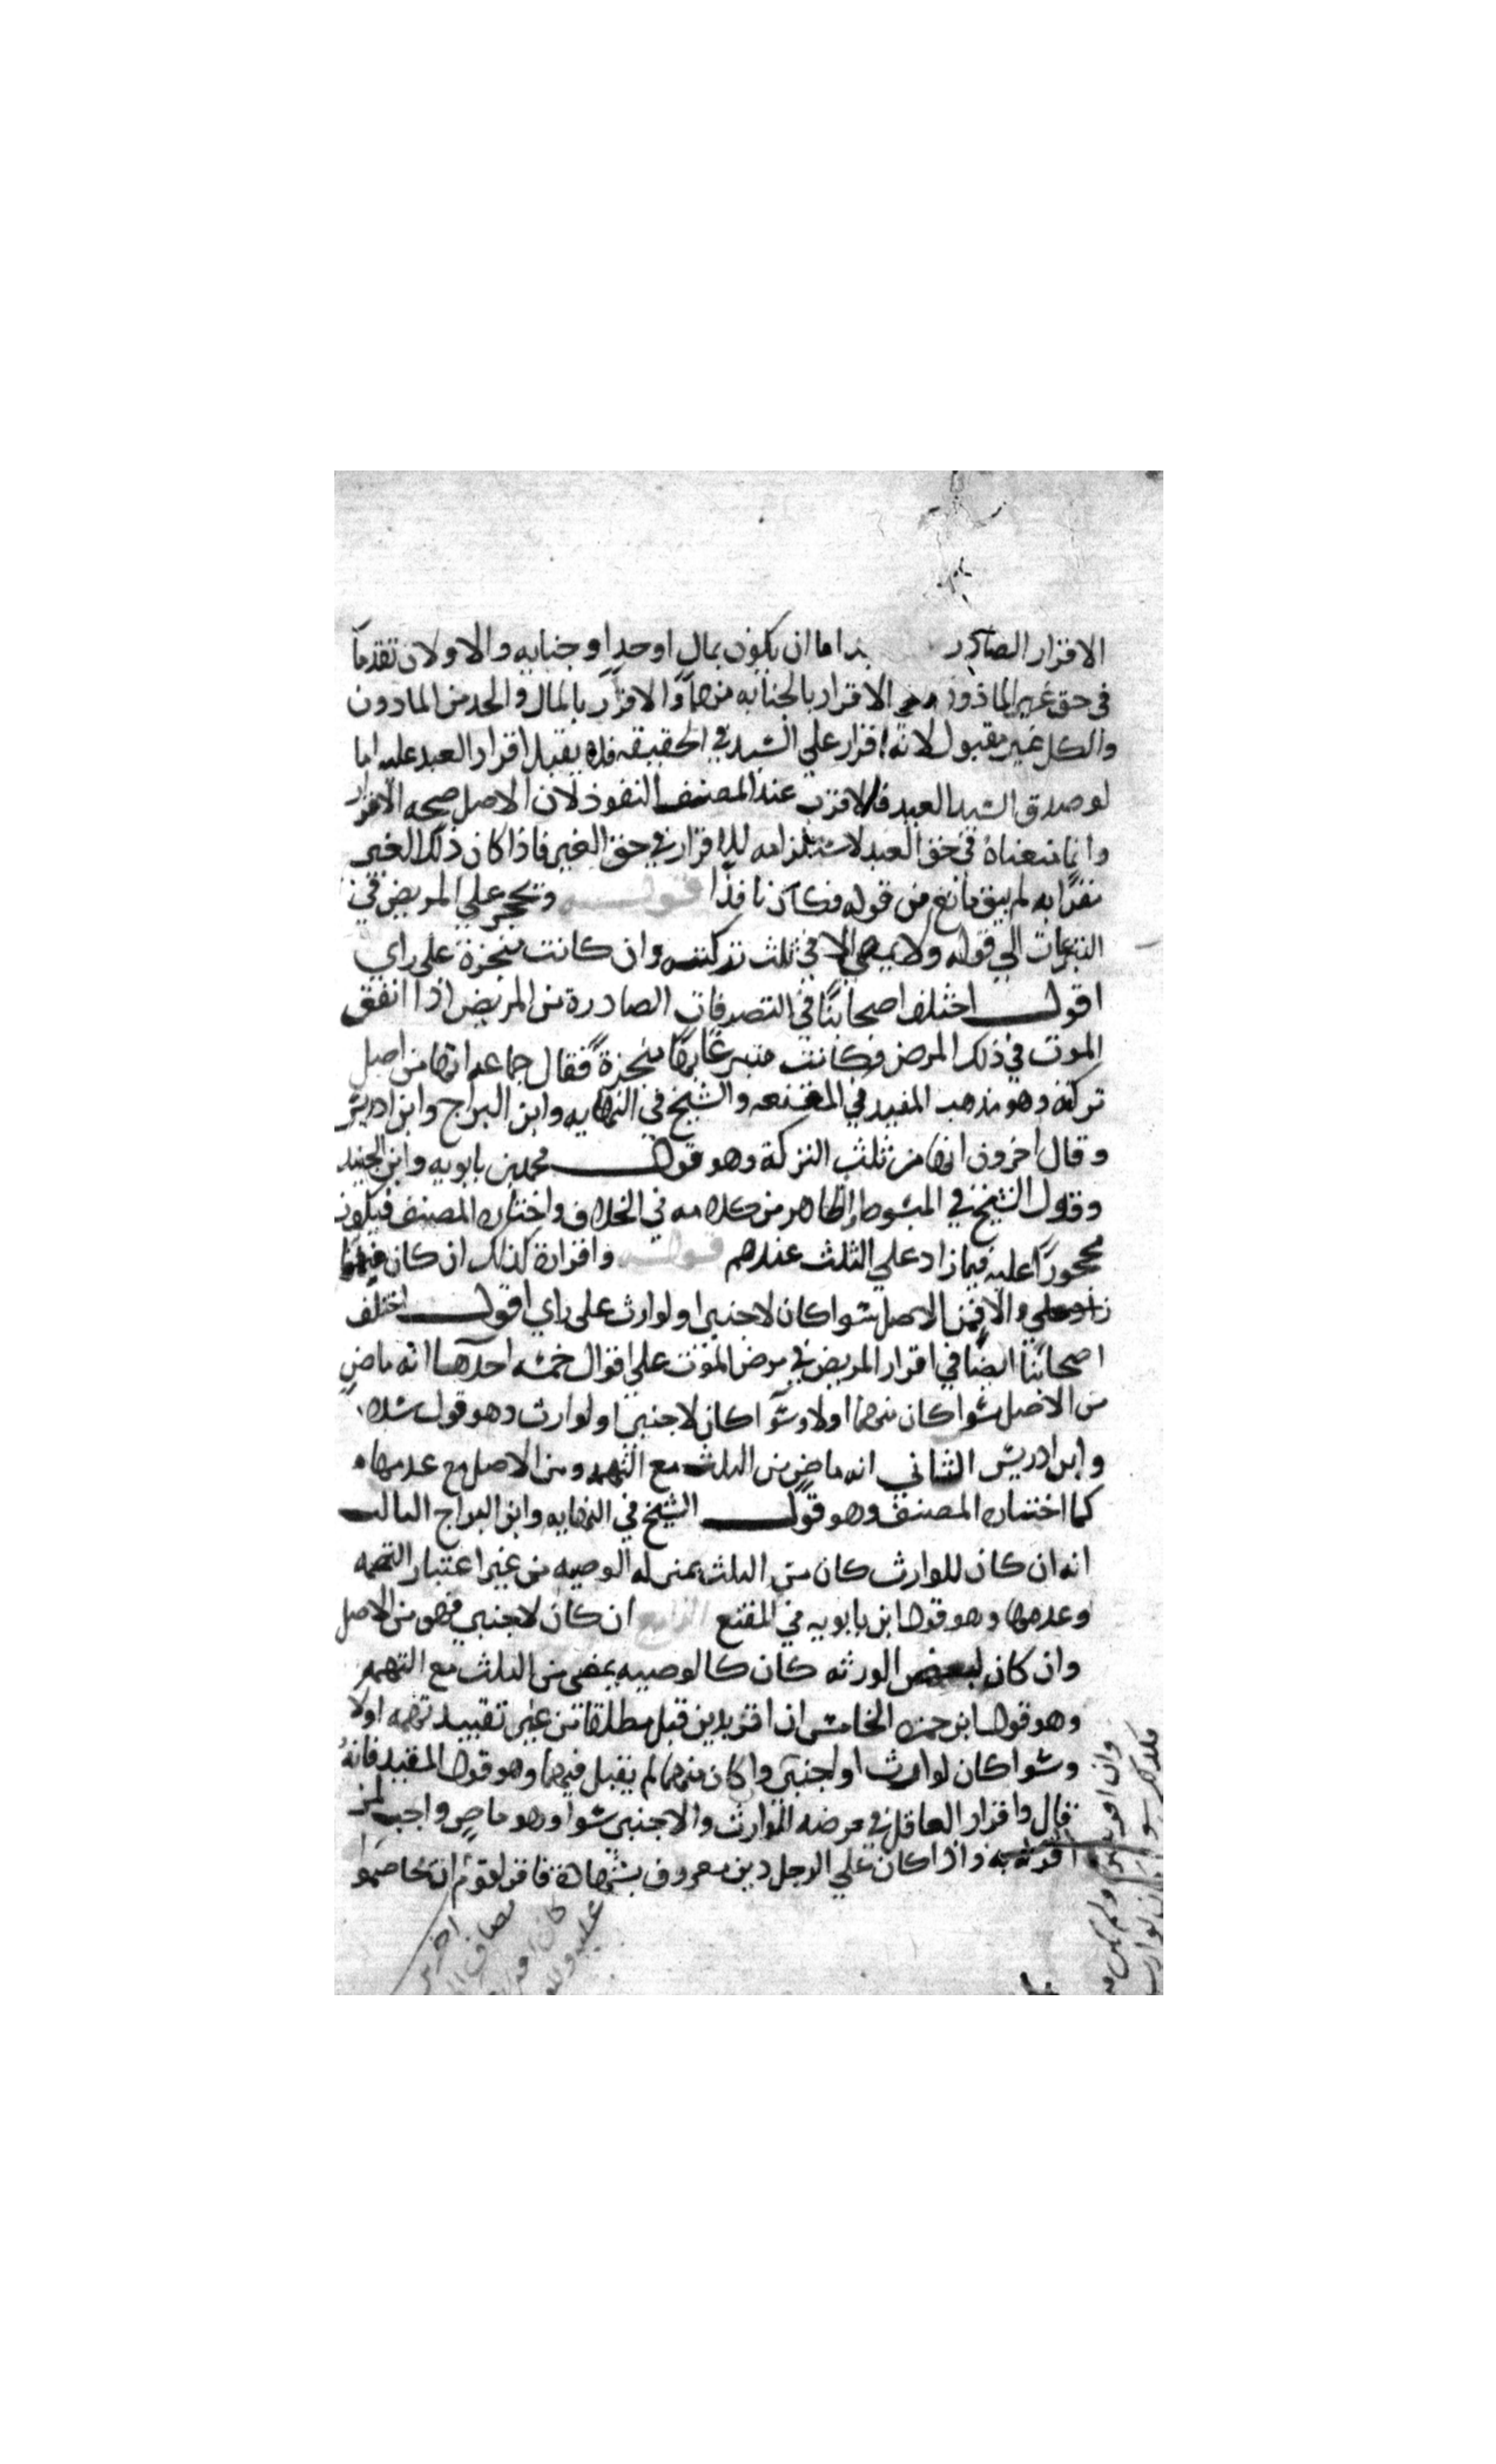 الاقرار الصادر اما ان يكون بمال اوحد او جنايه والاولان تقدما
فى حق غير الماذون الاقرار بالجنايه منهما والاقرار بالمال والحد من الماذون
والكل غير مقبول لانه اقرار علي السيد في الحقيقه فلا يقبل اقرار العبد عليه اما
لو صدق السيد العبد فالاقرب عند المصنف النفوذ لان الاصل صحه الاقرار
وانما منعناه في حق العبد لاستلزامه للاقرار في حق الغير فاذا كان ذلك الغير
مقرا به لم يبق مانع من قوله فكان نافذا قوله ويحجر علي المريض في
التبرعات الي قوله ولا يمضي الا في ثلث تركته وان كانت منجزة على راي
اقول اختلف اصحابنا في التصرفات الصادرة من المريض اذا اتفق
الموت في ذلك المرض فكانت متبرعا بها منجزة فقال جماعه انها من اصل
تركته وهو مذهب المفيد في المقنعه والشيخ في النهايه وابن البراج وابن ادريس
وقال اخرون انها من ثلث التركة وهو قول محمد بن بابويه وابن الجنيد
وقول الشيخ في المبسوط والظاهر من كلامه في الخلاف واختاره المصنف فيكون
محجورا عليه فيما زاد علي الثلث عندهم قوله واقراره كذلك ان كان متهما
والا فمن الاصل سوا كان لاجنبي او لوارث على راي اقول اختلف
اصحابنا ايضا في اقرار المريض في مرض الموت علي اقوال خمسه احدها انه ماض
من الاصل سوا كان متهما اولا وسوا كان لاجنبي او لوارث وهو قول سلار
وابن ادريس الثاني انه ماض من الثلث مع التهمه ومن الاصل مع عدمها
كما اختاره المصنف وهو قول الشيخ في النهايه وابن البراج الثالث
انه ان كان للوارث كان من الثلث بمنزله الوصيه من غير اعتبار التهمه
وعدمها وهو قول ابن بابويه في المقنع الرابع ان كان لاجنبي فهو من الاصل
وان كان لبعض الورثه كان كالوصيه يمضي من الثلث مع التهمه
وهو قول ابن حمزه الخامس ان اقر بدين قبل مطلقا من غير تقييد تهمه اولا
وسوا كان لوارث او اجنبي وا كان متهما لم يقبل فيهما وهو قول المفيد فانه
قال واقرار العاقل في مرضه للوارث والاجنبي سوا وهو ماض واجب لمن
اقر له به واذا كان علي الرجل دين معروف بشهادة فاقر لقوم